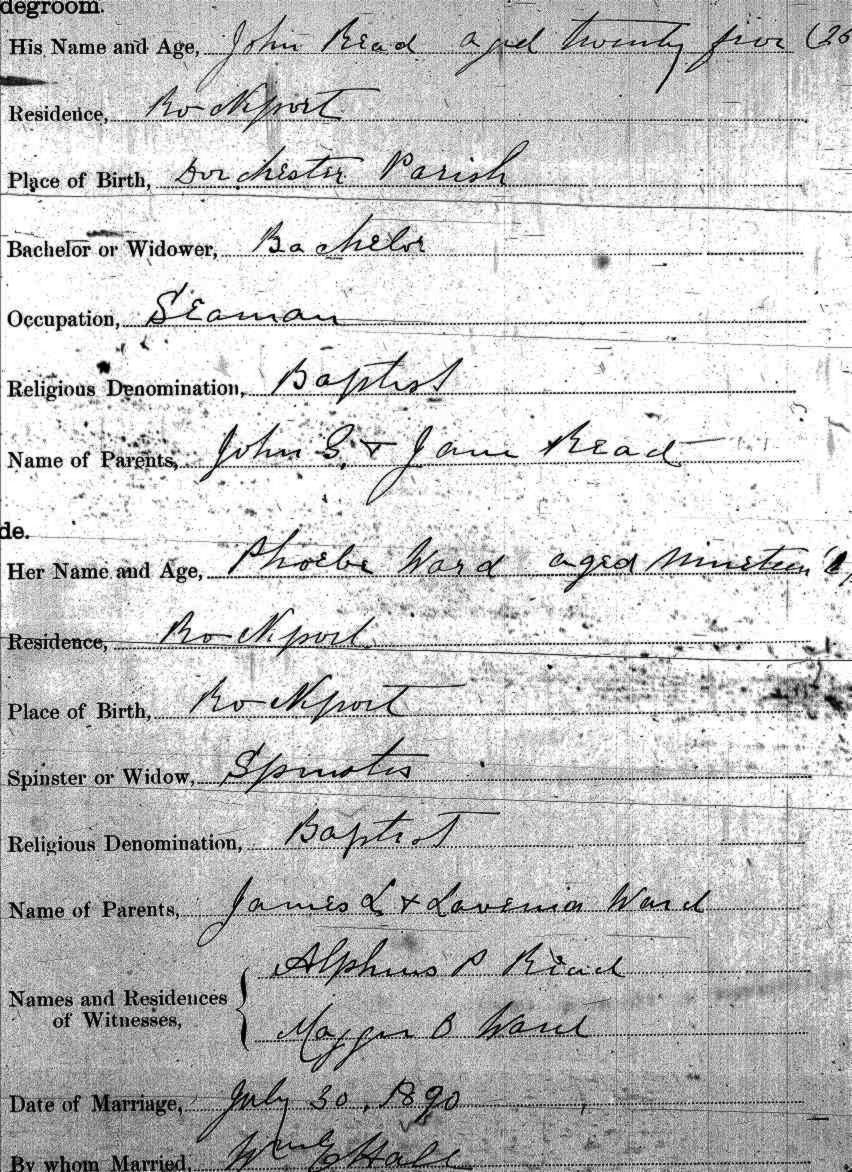 degroom.
His Name and Age, John Read aged twenty five (25
Residence, Rockport
Place of Birth, Dorchester Parish
Bachelor or Widower, Bachelor
Occupation, Seaman
Religious Denomination, Baptist
Name of Parents, John G. & Jane Read
de.
Her Name and Age, Phoebe Ward aged nineteen
Residence, Rockport
Place of Birth, Rockport
Spinster or Widow, Spinster
Religious Denomination, Baptist
Name of Parents, James L. & Lavenia Ward
Alpheus P Read
Names and Residences
of Witnesses,
Maggie B Ward
Date of Marriage, July 30, 1890
By whom Married, Wm E Hall